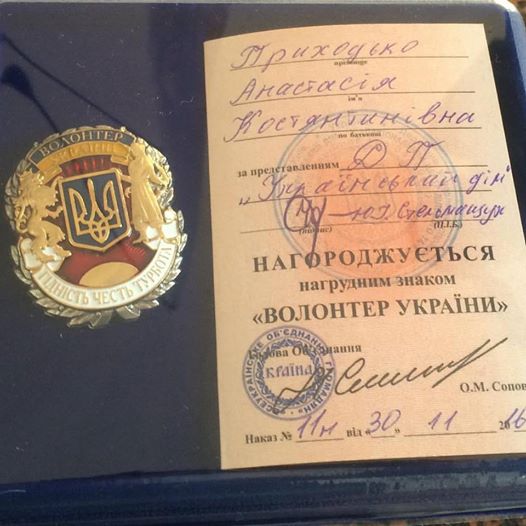 ВОЛОНТЕР
УКРАЇНИ
ГІДНІСТЬ ЧЕСТЬ ТУРБОТА
Приходько
прізвище
Анастасія
ім'я
Костянтинівна
по батькові
за представленням ДП
"Український дім"
Ю.І. Стельмащук
(підпис) (П.І.Б.)
НАГОРОДЖУЄТЬСЯ
нагрудним знаком
«ВОЛОНТЕР УКРАЇНИ»
Голова Об'єднання
ВСЕУКРАЇНСЬКЕ ОБ'ЄДНАННЯ ГРОМАДЯН
КРАЇНА
О.М. Сопов
Наказ № 11н від "30" 11 2016